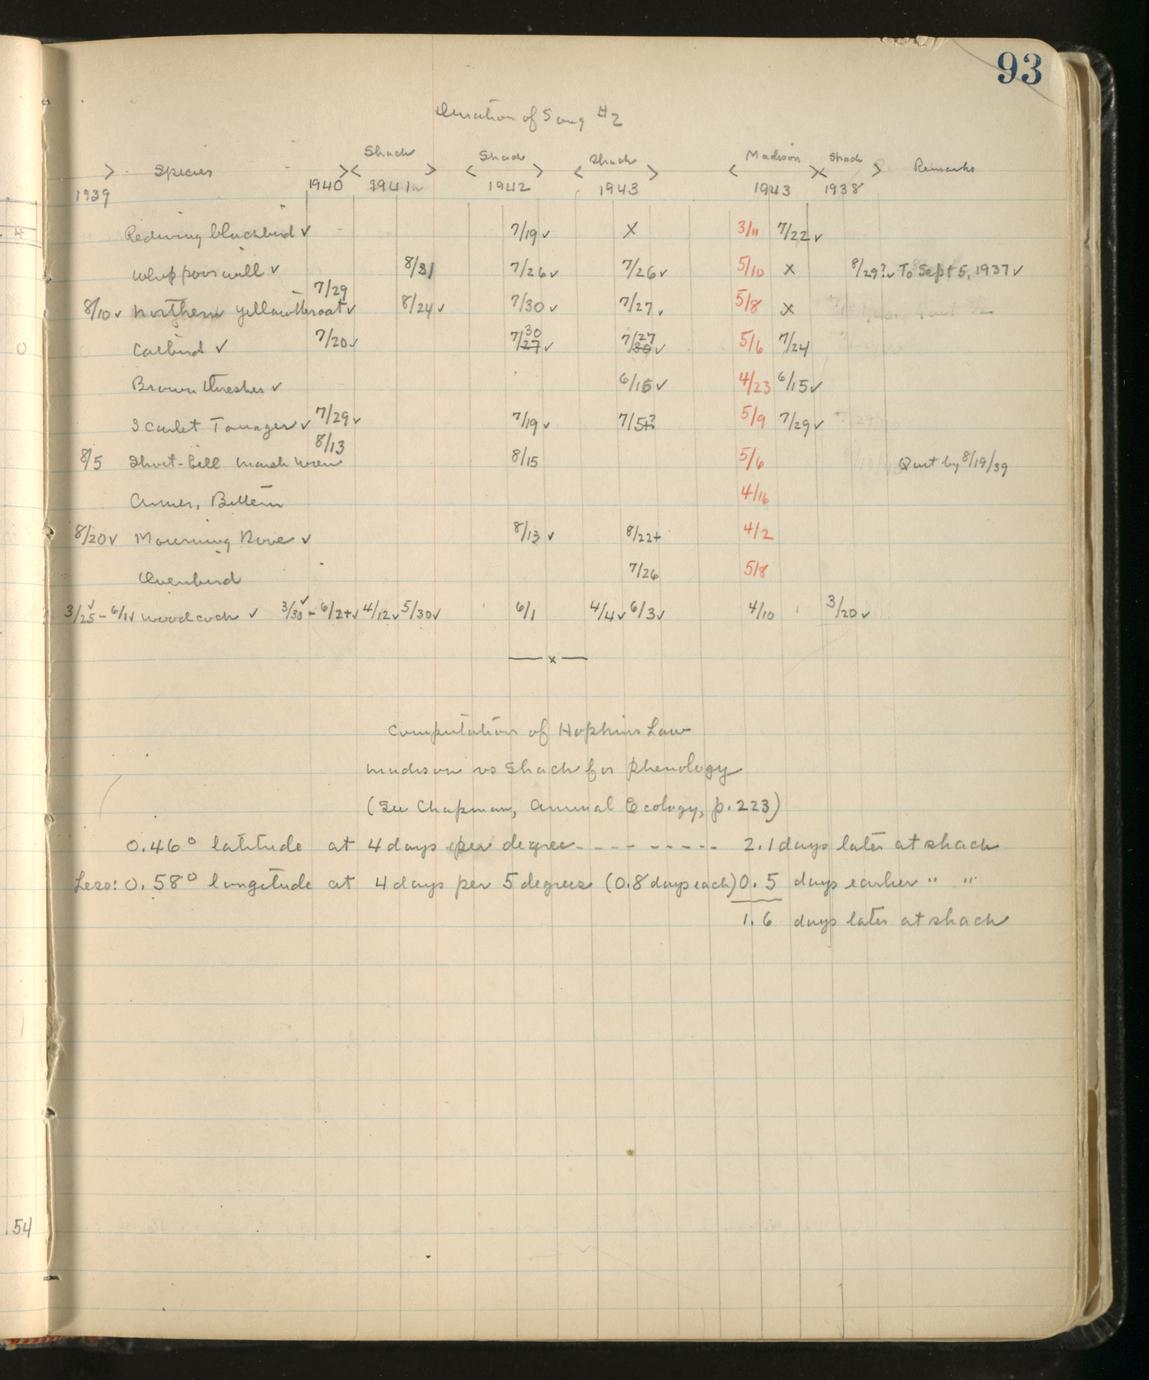 93
Duration of Song #2
Shack Shack Shack Madison Shack
Species Remarks
1939 1940 1941 1942 1943 1943 1938
Redwing blackbird ✓ 7/19 ✓ X 3/11 7/22 ✓
Whippoorwill ✓ 8/31 7/26 ✓ 7/26 ✓ 5/10 X 8/29? ✓ To Sept 5, 1937 ✓
8/10 ✓ Northern Yellowthroat ✓ 7/29 8/24 ✓ 7/30 ✓ 7/27 ✓ 5/8 X
Catbird ✓ 7/20 ✓ 7/30 27 ✓ 7/27 30 ✓ 5/6 7/24
Brown thrasher ✓ 6/15 ✓ 4/23 6/15 ✓
Scarlet Tanager ✓ 7/29 ✓ 7/19 ✓ 7/5+? 5/9 7/29 ✓
8/5 Short-bill marsh wren 8/13 8/15 5/6 Quit by 8/19/39
Amer. Bittern 4/16
8/20 ✓ Mourning Dove ✓ 8/13 ✓ 8/22+ 4/2
Ovenbird 7/26 5/8
3/25 ✓ - 6/1 ✓ Woodcock ✓ 3/30 ✓ - 6/2+ ✓ 4/12 ✓ 5/30 ✓ 6/1 4/4 ✓ 6/3 ✓ 4/10 3/20 ✓
—x—
Computation of Hopkins Law
Madison vs Shack for phenology
(See Chapman, Animal Ecology, p. 223)
0.46° latitude at 4 days per degree - - - - - - - - 2.1 days later at shack
Less: 0.58° longitude at 4 days per 5 degrees (0.8 days each) 0.5 days earlier " "
1.6 days later at shack
54